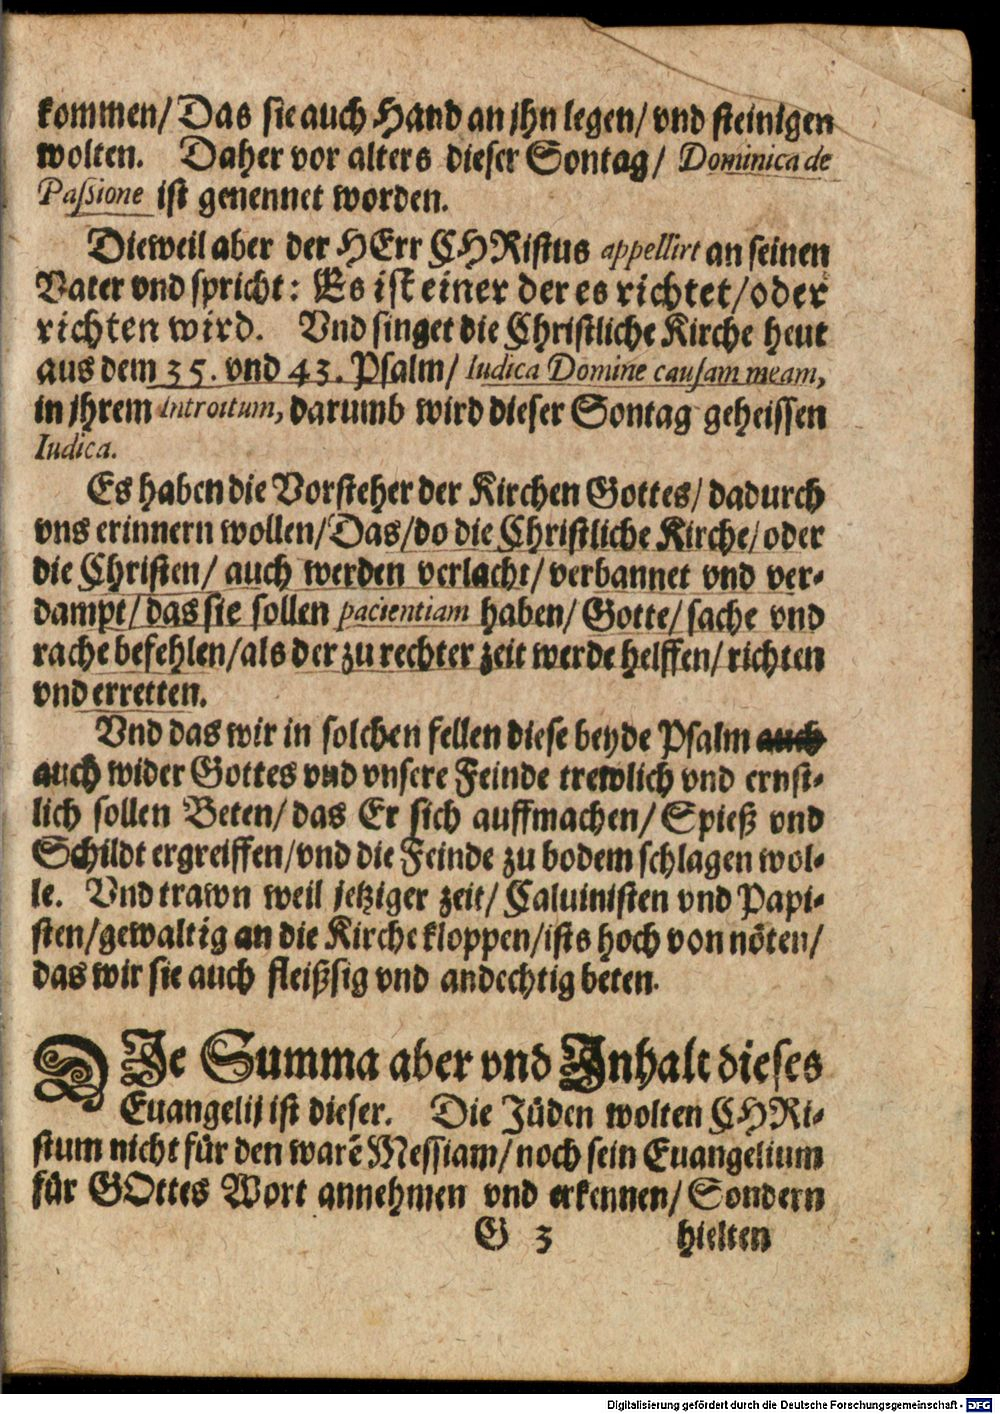 kommen/ Das sie auch Hand an jhn legen/ vnd steinigen
wolten. Daher vor alters dieser Sontag/ Dominica de
Passione ist genennet worden.
Dieweil aber der HErr CHRistus appellirt an seinen
Vater vnd spricht: Es ist einer der es richtet/ oder
richten wird. Vnd singet die Christliche Kirche heut
aus dem 35. vnd 43. Psalm/ Iudica Domine causam meam,
in jhrem Introitum, darumb wird dieser Sontag geheissen
Iudica.
Es haben die Vorsteher der Kirchen Gottes/ dadurch
vns erinnern wollen/ Das/ do die Christliche Kirche/ oder
die Christen/ auch werden verlacht/ verbannet vnd ver-
dampt/ das sie sollen pacientiam haben/ Gotte/ sache vnd
rache befehlen/ als der zu rechter zeit werde helffen/ richten
vnd erretten.
Vnd das wir in solchen fellen diese beyde Psalm auch
auch wider Gottes vnd vnsere Feinde trewlich vnd ernst-
lich sollen Beten/ das Er sich auffmachen/ Spieß vnd
Schildt ergreiffen/ vnd die Feinde zu bodem schlagen wol-
le. Vnd trawn weil jetziger zeit/ Caluinisten vnd Papi-
sten/ gewaltig an die Kirche kloppen/ ists hoch von nöten/
das wir sie auch fleißsig vnd andechtig beten.
DIe Summa aber vnd Inhalt dieses
Euangelij ist dieser. Die Jüden wolten CHRi-
stum nicht für den warē Messiam/ noch sein Euangelium
für GOttes Wort annehmen vnd erkennen/ Sondern
G 3 hielten
Digitalisierung gefördert durch die Deutsche Forschungsgemeinschaft - DFG